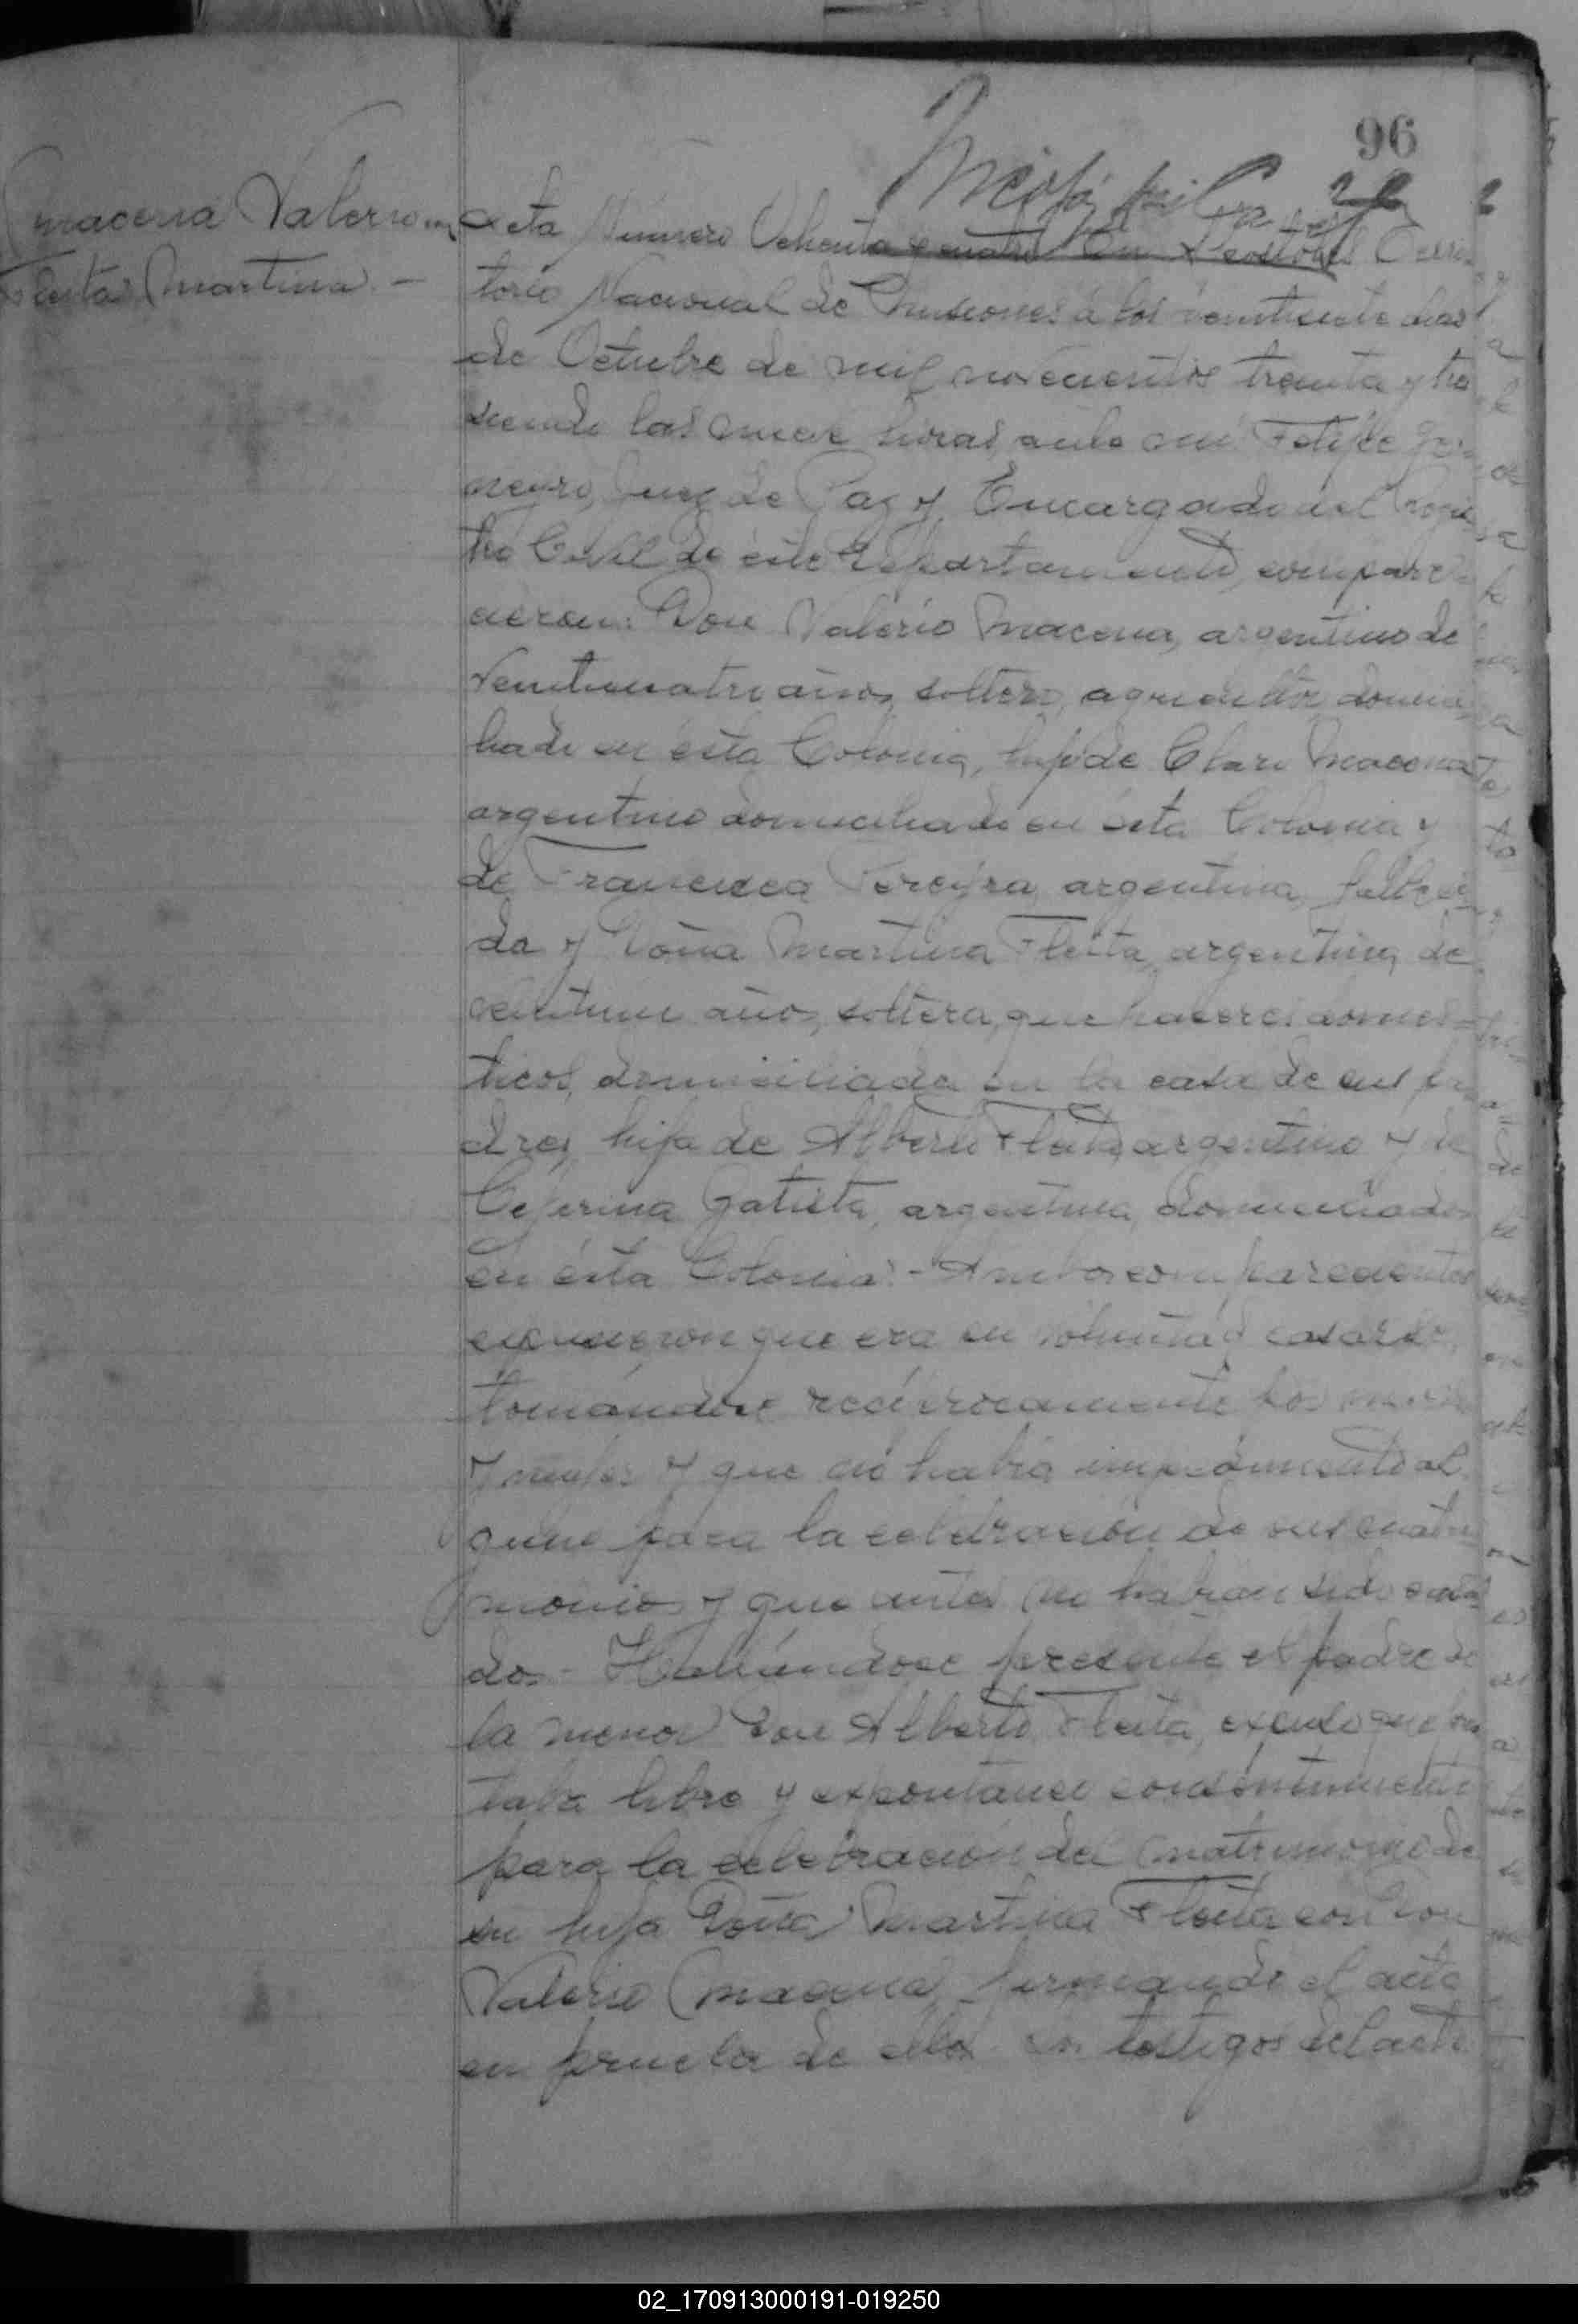 96
Macena Valerio con
Fleita Martina. -
Acta Número Ochenta y cuatro En Apóstoles Terri
torio Nacional de Misiones a los veintisiete dias
de Octubre de mil novecientos treinta y tres
siendo las nueve horas, ante mi Felipe
negro, Juez de Paz y Encargado del Regis
tro Civil de este Departamento, compare
cieron: Don Valerio Macena, argentino de
veinticuatro años, soltero, agricultor, domici
liado en ésta Colonia, hijo de Claro Macena
argentino domiciliado en ésta Colonia y
de Francisca Pereyra, argentina, falleci
da y Doña Martina Fleita, argentina, de
veintiun años, soltera, quehaceres domes
ticos, domiciliada en la casa de sus pa
dres, hija de Alberto Fleita, argentino y de
Ceferina Batista, argentina, domiciliados
en ésta Colonia. - Ambos comparecientes
expusieron que era su voluntad casarse,
tomándose recíprocamente por marido
y mujer y que no había impedimento al
guno para la celebración de sus matri
monios y que antes no habían sido casa
dos. - Hallándose presente el padre de
la menor Don Alberto Fleita, expuso que pres
taba libre y expontáneo consentimiento
para la celebración del matrimonio de
su hija Doña Martina Fleita con Don
Valerio Macena, firmando el acta
en prueba de ello. Son testigos del acto
02_170913000191-019250